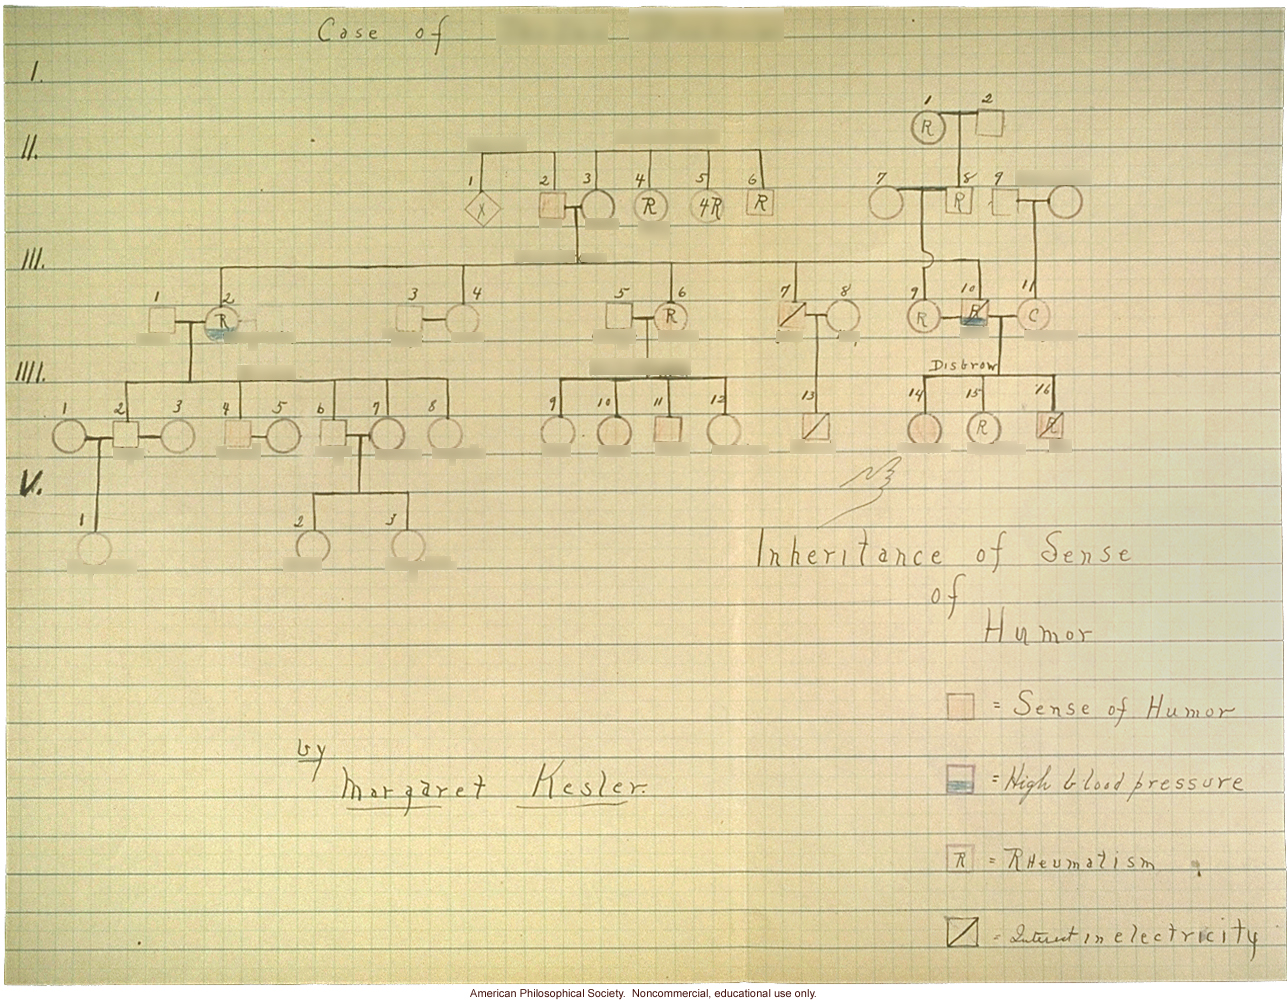 Case of
I.
1 2
R
II.
1 2 3 4 5 6 7 8 9
X R 4R R R
III.
1 2 3 4 5 6 7 8 9 10 11
R R R R C
IIII.
Disbrow
1 2 3 4 5 6 7 8 9 10 11 12 13 14 15 16
R R
V.
1 2 3
Inheritance of Sense
of
Humor
= Sense of Humor
by
Margaret Kesler.
= High blood pressure
R = RHeumatism
= Interest in electricity
American Philosophical Society. Noncommercial, educational use only.